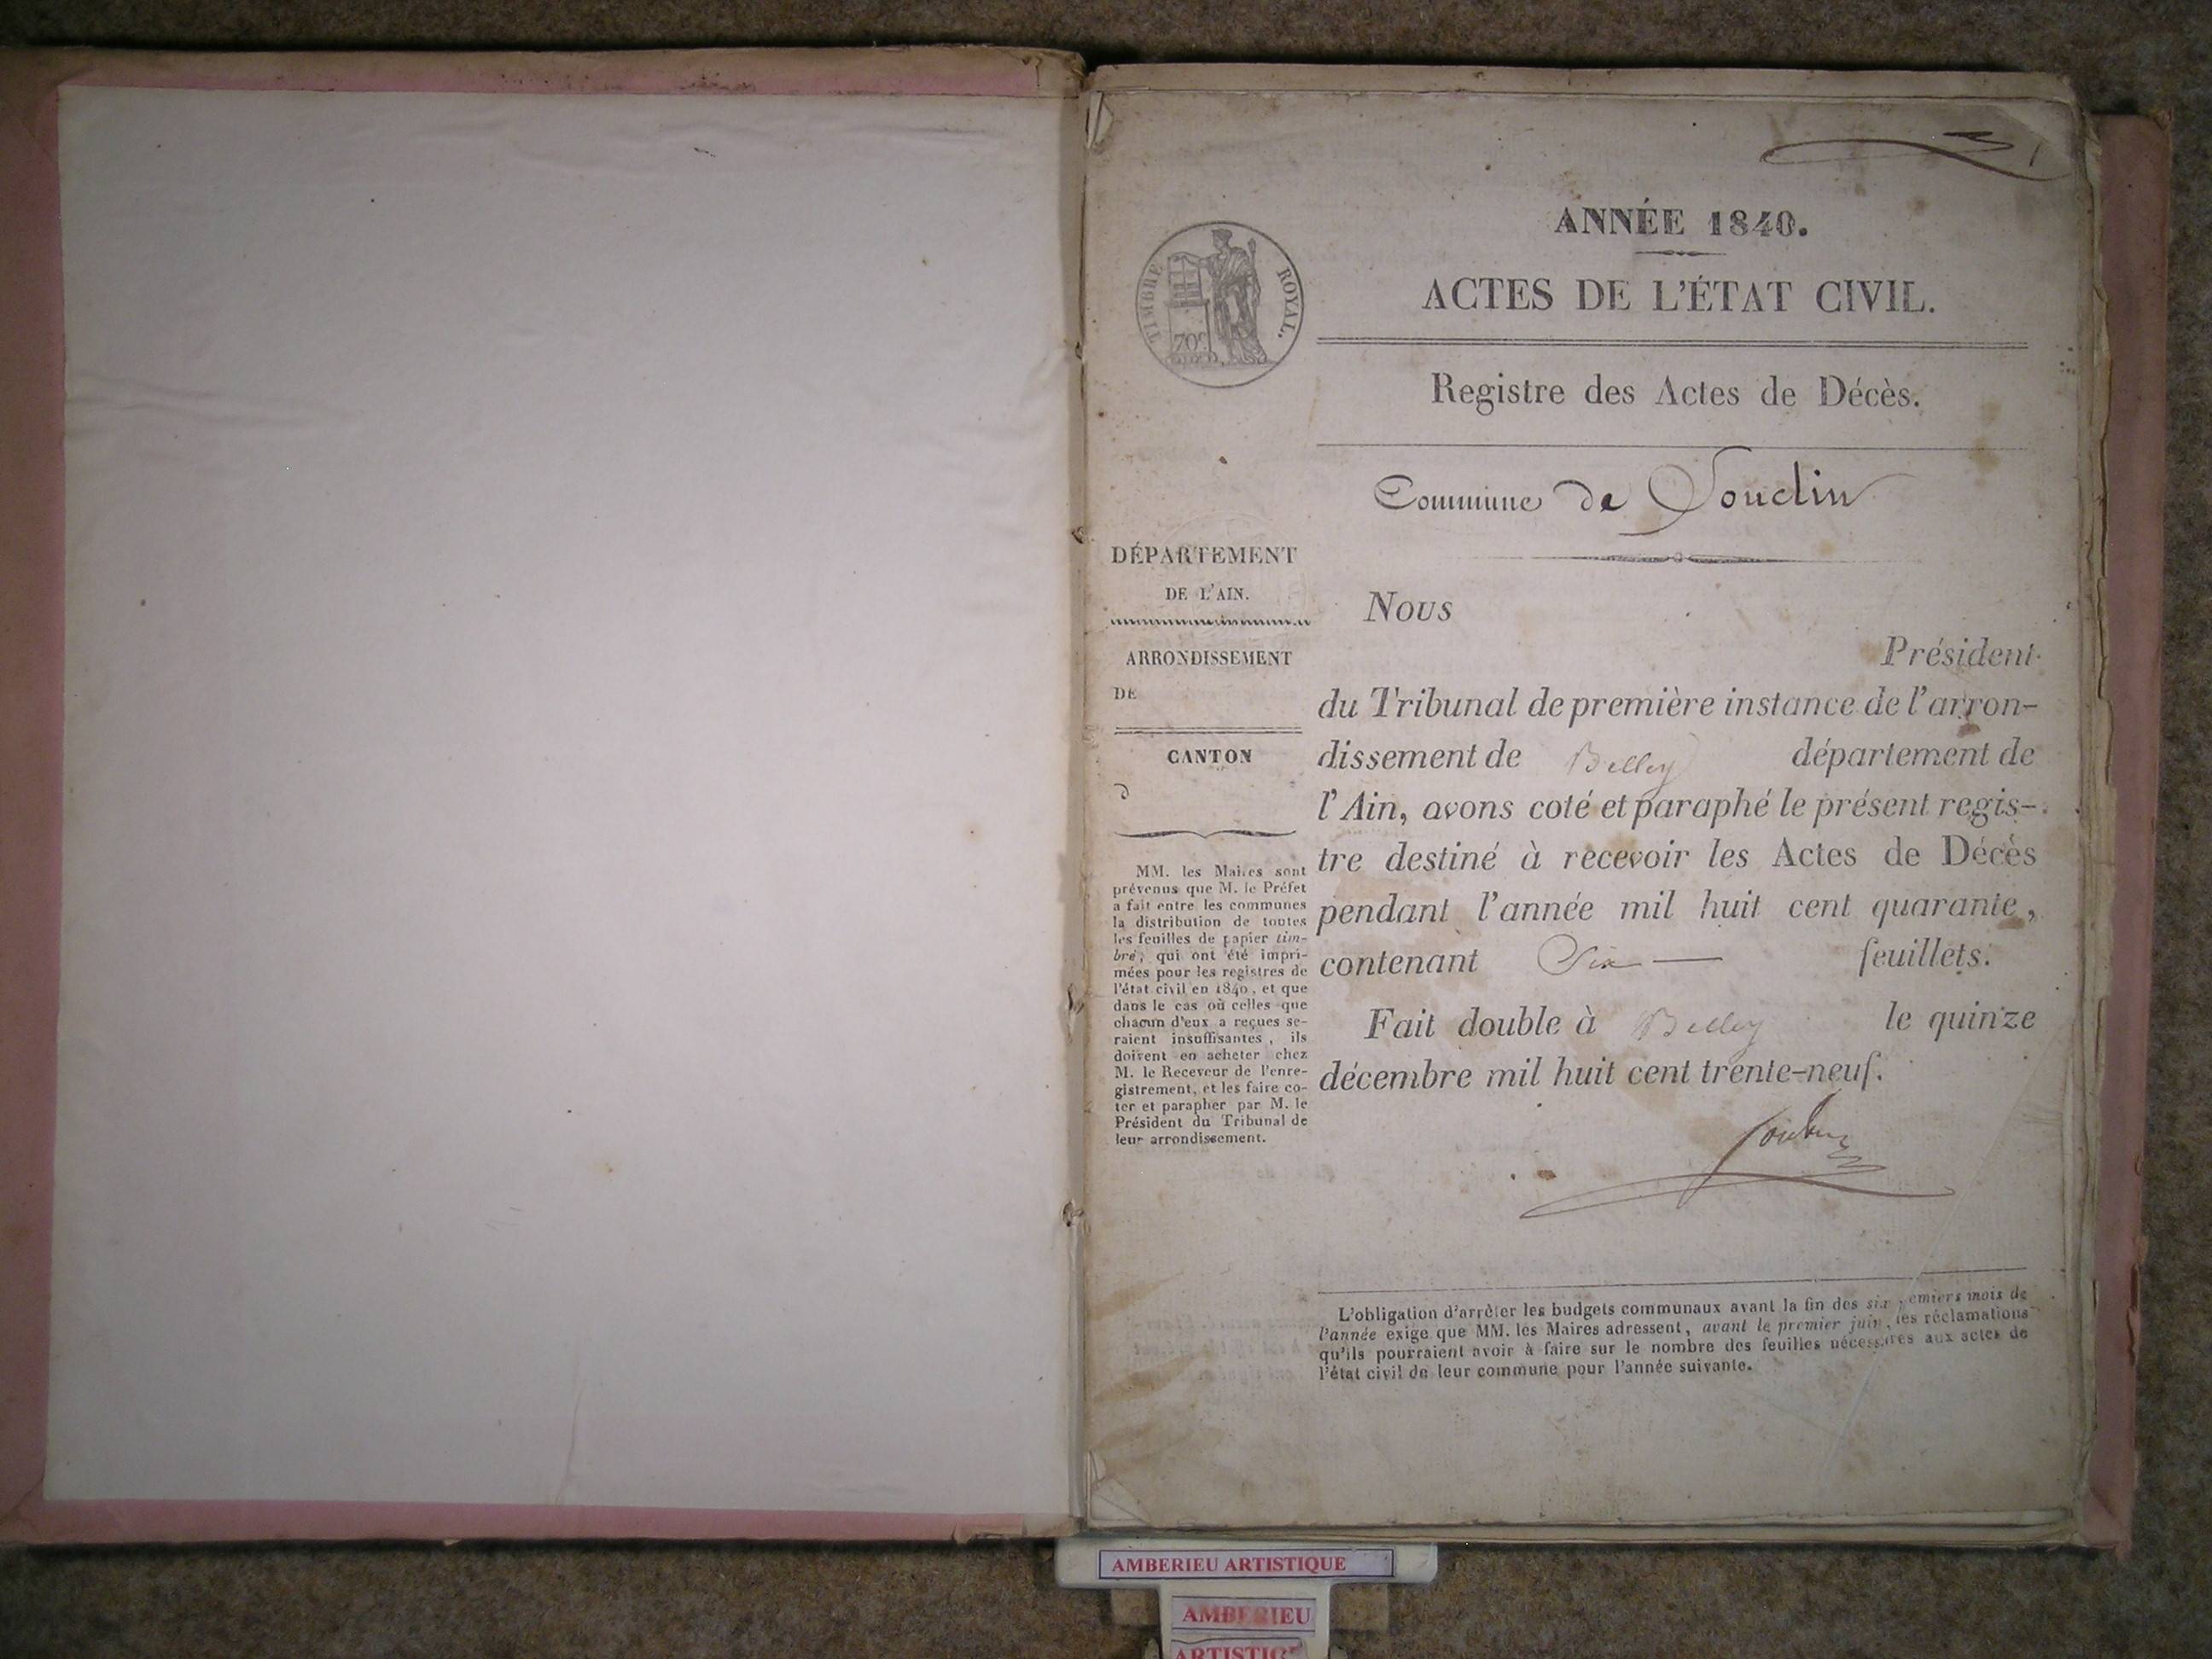 1
ANNÉE 1840.
ACTES DE L'ÉTAT CIVIL.
TIMBRE ROYAL.
70c
Registre des Actes de Décès.
Commune de Souclin
DÉPARTEMENT
DE L'AIN.
ARRONDISSEMENT
DE
CANTON
d
MM. les Maires sont
prévenus que M. le Préfet
a fait entre les communes
la distribution de toutes
les feuilles de papier tim-
bré, qui ont été impri-
mées pour les registres de
l'état civil en 1840, et que
dans le cas où celles que
chacun d'eux a reçues se-
raient insuffisantes, ils
doivent en acheter chez
M. le Receveur de l'enre-
gistrement, et les faire co-
ter et parapher par M. le
Président du Tribunal de
leur arrondissement.
Nous
Président
du Tribunal de première instance de l'arron-
dissement de Belley département de
l'Ain, avons coté et paraphé le présent regis-
tre destiné à recevoir les Actes de Décès
pendant l'année mil huit cent quarante,
contenant Six — feuillets.
Fait double à Belley le quinze
décembre mil huit cent trente-neuf.
L'obligation d'arrêter les budgets communaux avant la fin des six premiers mois de
l'année exige que MM. les Maires adressent, avant le premier juin, les réclamations
qu'ils pourraient avoir à faire sur le nombre des feuilles nécessaires aux actes de
l'état civil de leur commune pour l'année suivante.
AMBERIEU ARTISTIQUE
AMBERIEU
ARTISTIQ